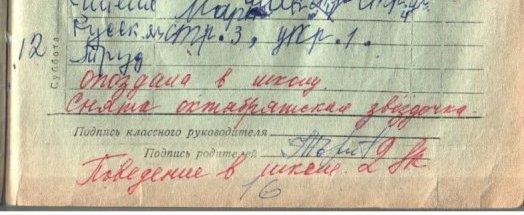 Чтение
12 Суббота Русск. стр. 3, упр. 1.
Труд
опоздала в школу.
Снята октябрятская звёздочка.
Подпись классного руководителя
Подпись родителей
Поведение в школе. 2
16